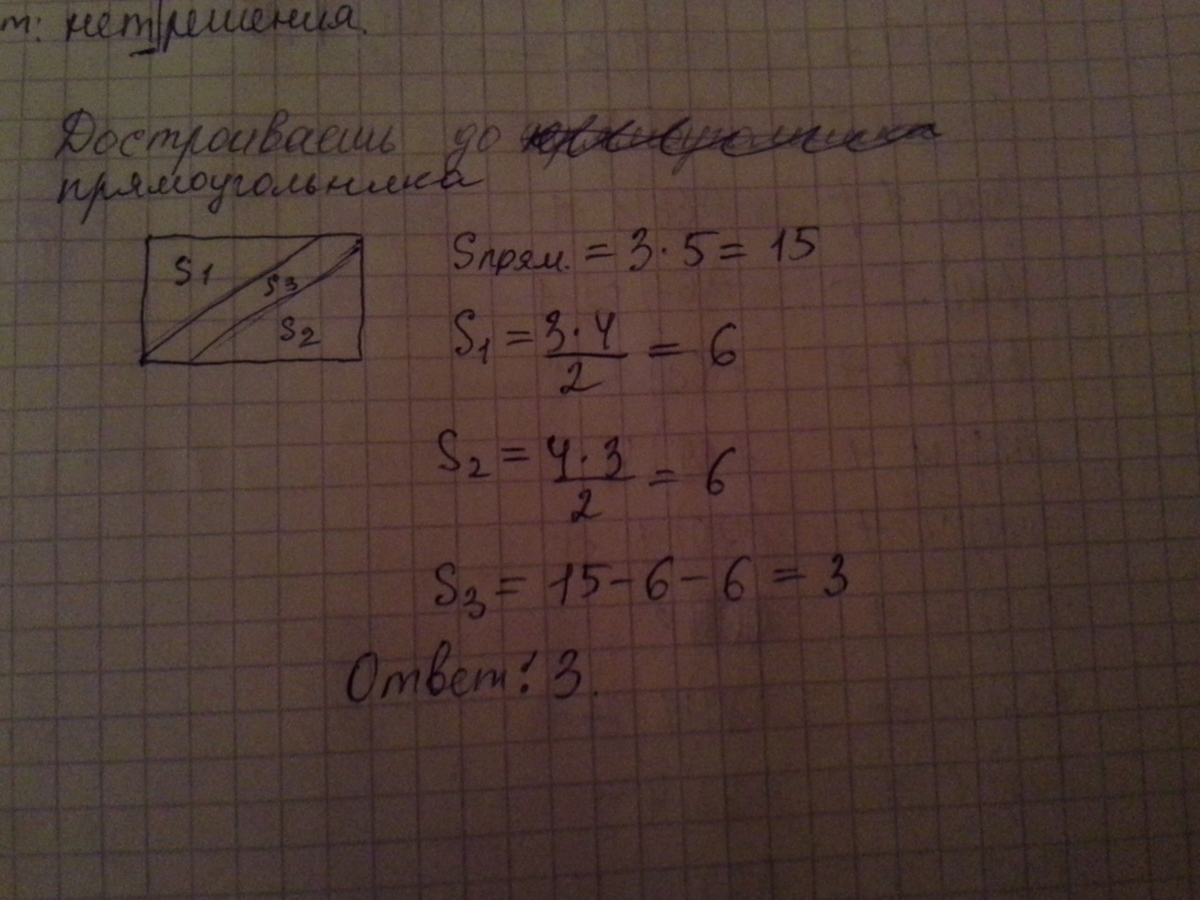 т: нет решения.
Достраиваешь до
прямоугольника
S1
S3
S2
Sпрям. = 3·5 = 15
S1 = 3·4/2 = 6
S2 = 4·3/2 = 6
S3 = 15-6-6 = 3
Ответ: 3.